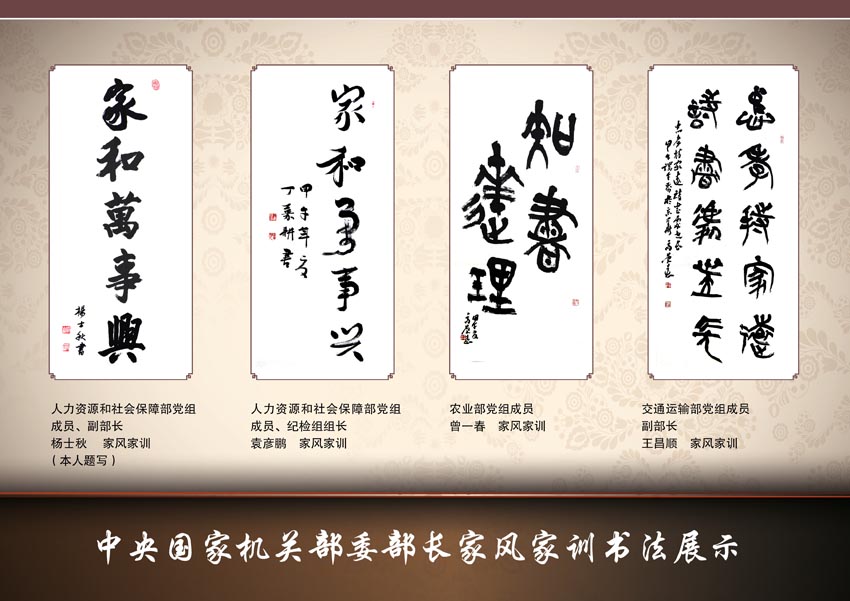 家和萬事興
楊士秋書
家和万事兴
甲午年夏
丁嘉耕書
知書
達理
忠孝持家遠
詩書
人力资源和社会保障部党组
成员、副部长
杨士秋　家风家训
（本人题写）
人力资源和社会保障部党组
成员、纪检组组长
袁彦鹏　家风家训
农业部党组成员
曾一春　家风家训
交通运输部党组成员
副部长
王昌顺　家风家训
中央国家机关部委部长家风家训书法展示